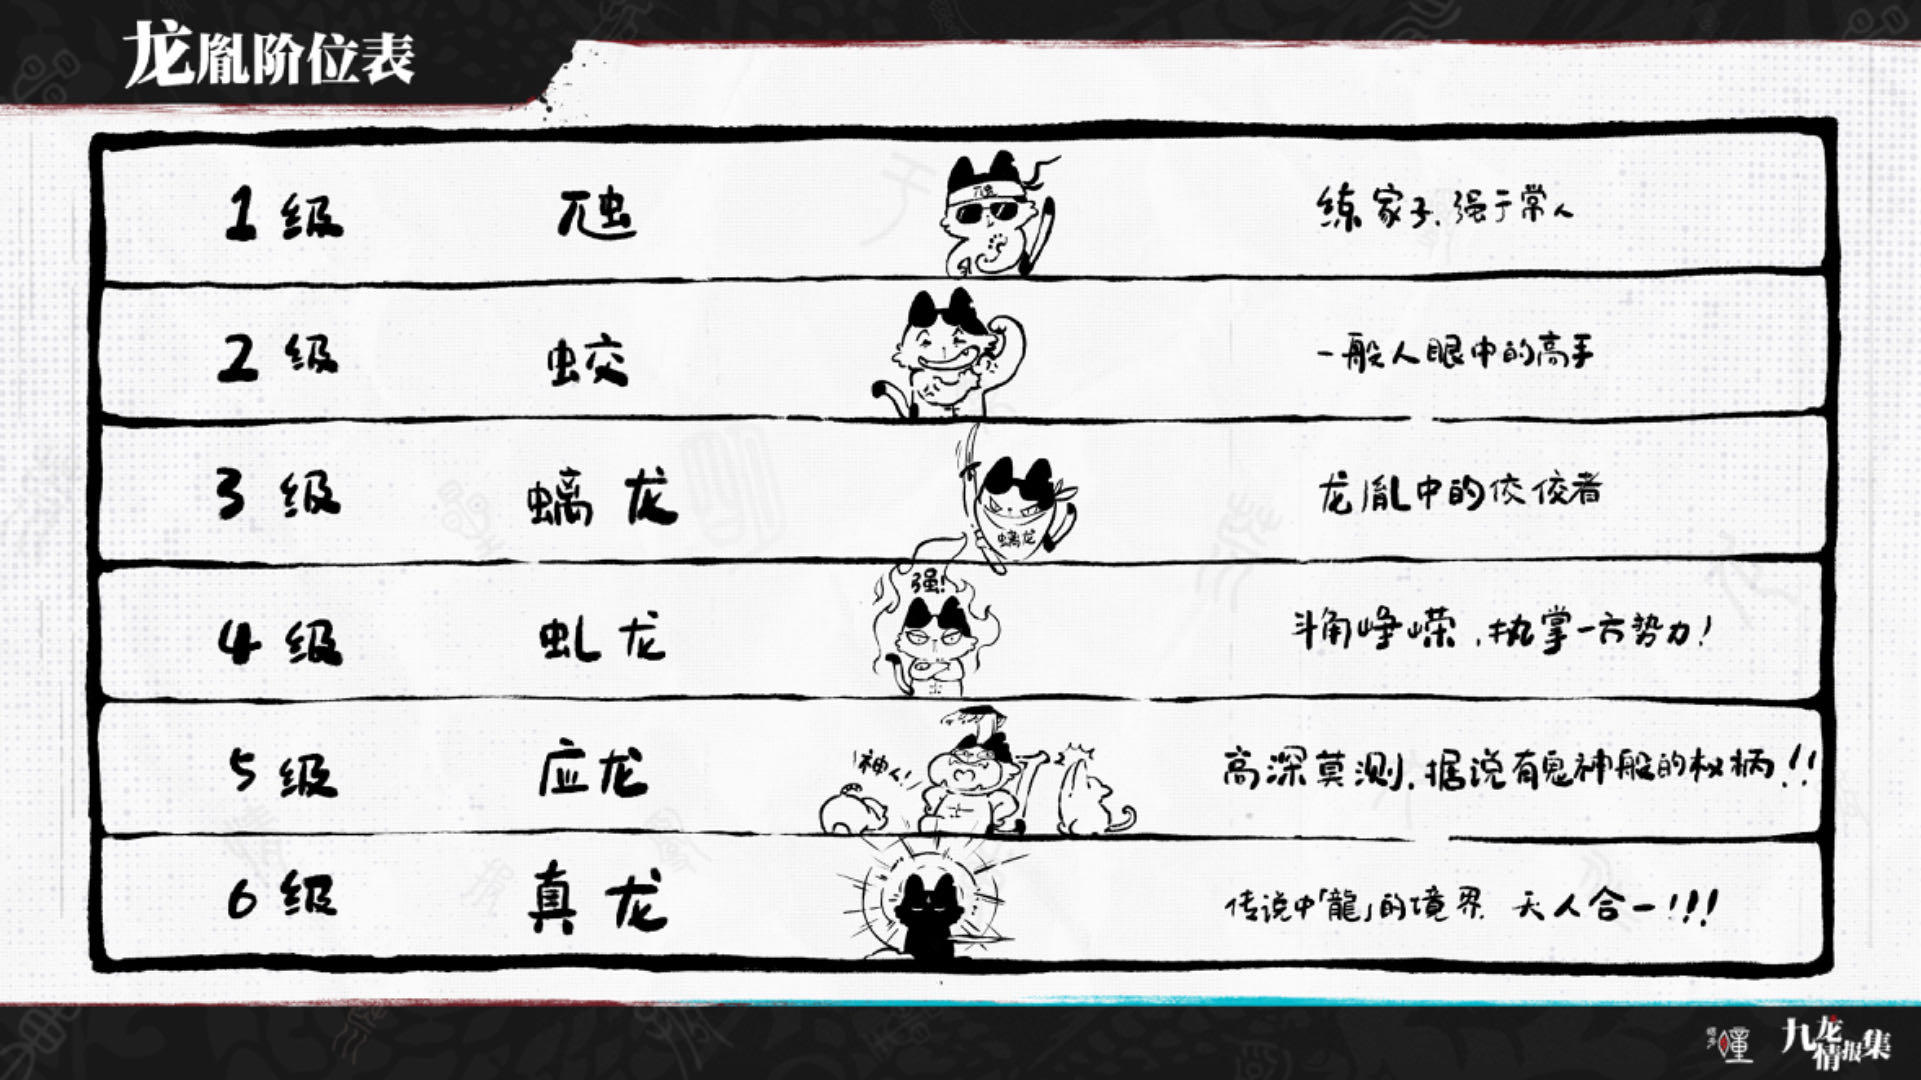 龙胤阶位表
1级 虺 练家子,强于常人
2级 蛟 一般人眼中的高手
3级 螭龙 龙胤中的佼佼者
螭龙
强!
4级 虬龙 斗角峥嵘,执掌一方势力!
5级 应龙 高深莫测,据说有鬼神般的权柄!!
神人!
6级 真龙 传说中「龍」的境界 天人合一!!!
九龙情报集